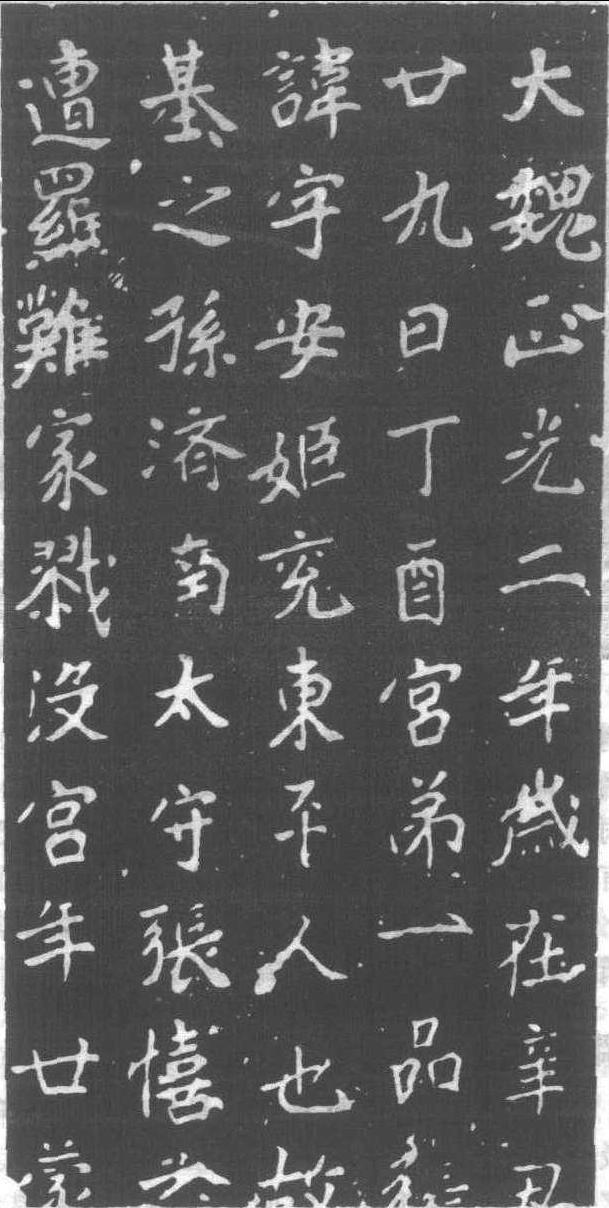 大魏正光二年歲在辛
廿九日丁酉宮弟一品
諱字安姬兖東平人也故
基之孫濟南太守張憘
遭羅難家戮没宮年廿蒙